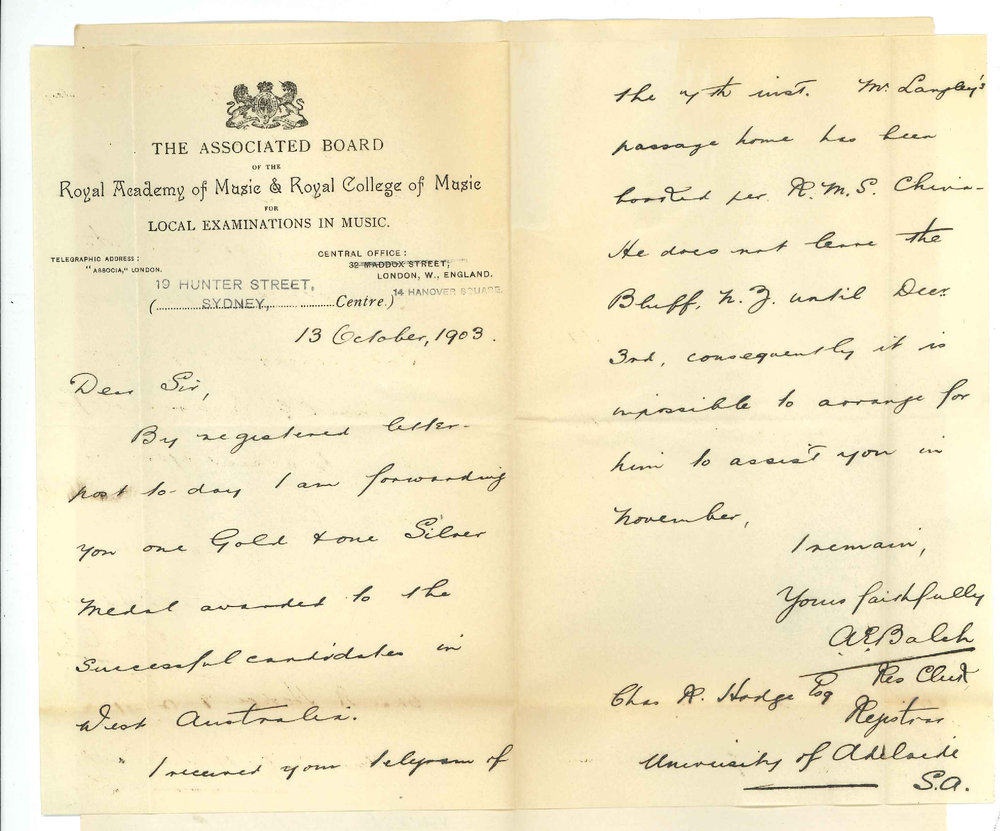 THE ASSOCIATED BOARD
OF THE
Royal Academy of Music & Royal College of Music
FOR
LOCAL EXAMINATIONS IN MUSIC.
TELEGRAPHIC ADDRESS:
"ASSOCIA," LONDON.
CENTRAL OFFICE:
32 MADDOX STREET,
LONDON, W., ENGLAND.
14 HANOVER SQUARE.
19 HUNTER STREET,
(SYDNEY, Centre.)
13 October, 1903.
Dear Sir,
By registered letter-
post to-day I am forwarding
you one Gold & one Silver
Medal awarded to the
Successful candidates in
West Australia.
I received your telegram of
the 7th inst. Mr Langley's
passage home has been
booked per R.M.S. China-
He does not leave the
Bluff, N.Z. until Decr
3rd, consequently it is
impossible to arrange for
him to assist you in
November,
I remain,
Yours faithfully
A.E. Balch
Res Clerk
Chas R. Hodge Esq
Registrar
University of Adelaide
S.A.